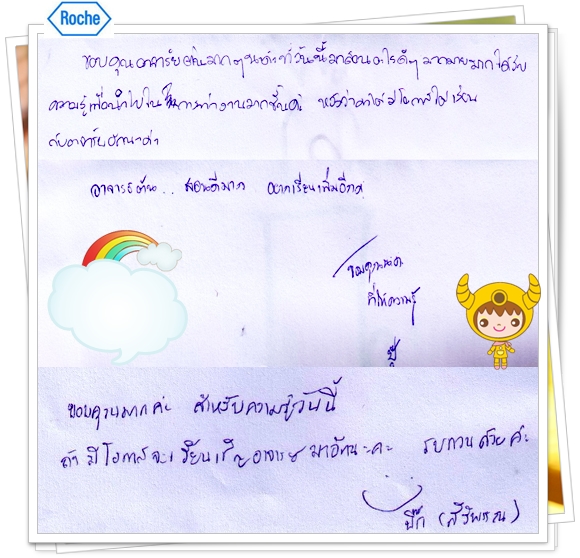 Roche
ขอบคุณอาจารย์ต้นมากๆนะค่ะที่วันนี้มาสอนอะไรดีๆ มากมายมาก ได้รับ
ความรู้เพื่อนำไปใช้ในการทำงานมากขึ้นค่ะ หวังว่าคงได้มีโอกาสได้เรียน
กับอาจารย์อีกนะค่ะ
อาจารย์ต้น.. สอนดีมาก อยากเรียนเพิ่มอีกค่ะ
ขอบคุณค่ะ
ที่ให้ความรู้
ขอบคุณมากค่ะ สำหรับความรู้วันนี้
ถ้ามีโอกาสจะเรียนเชิญอาจารย์มาอีกนะคะ รบกวนด้วยค่ะ